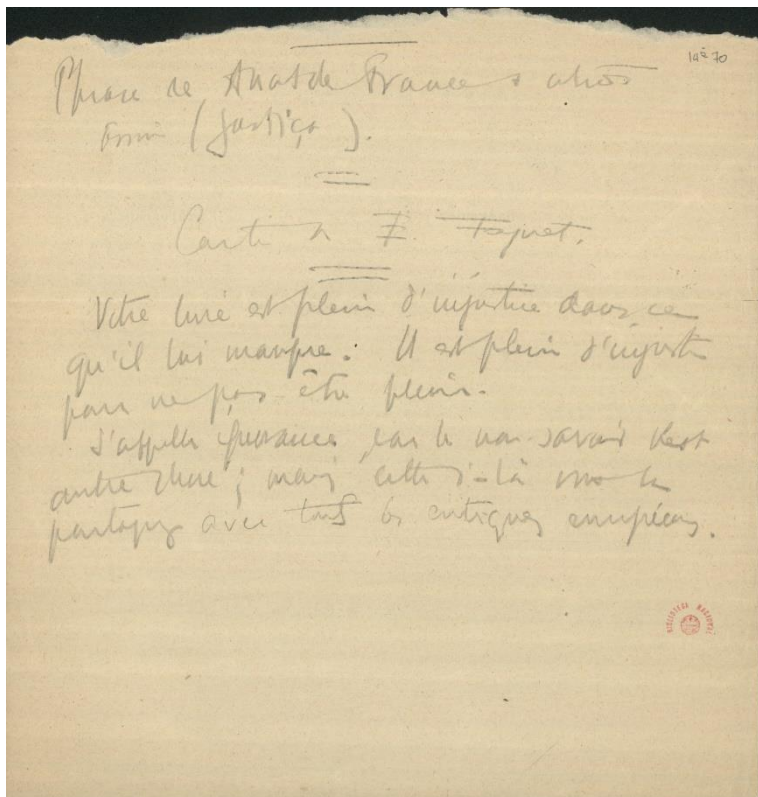 14E-70
Phrase de Anatole France e outros
assim (Justiça).
Carta a E. Faguet.
Votre livre est plein d'injustice dans ce
qu'il lui manque. Il est plein d'injustice
pour ne pas être plein.
J'appelle ignorance, car le non-savoir c'est
autre chose; mais celle-là vous la
partagez avec tous les critiques européens.
BIBLIOTECA NACIONAL